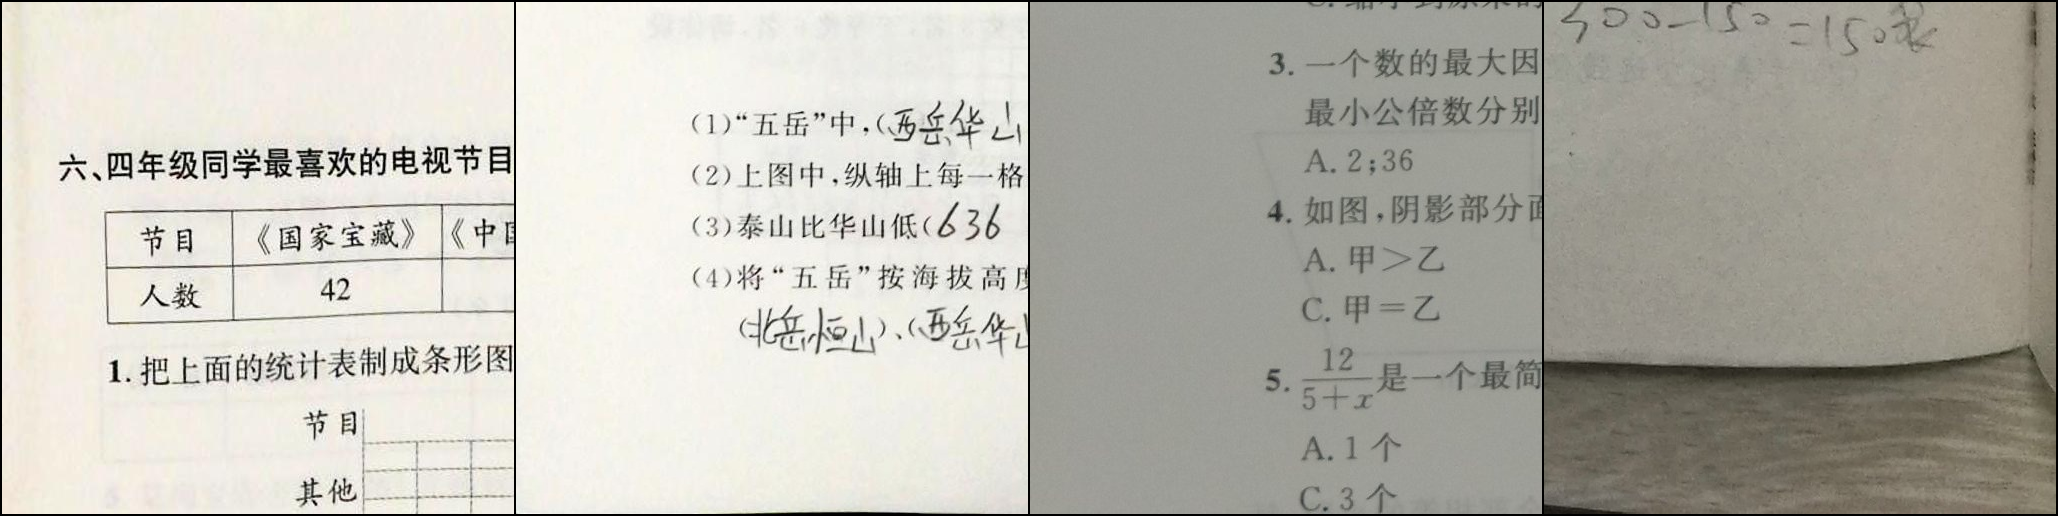 六、四年级同学最喜欢的电视节目
节目 《国家宝藏》 《中国
人数 42
1. 把上面的统计表制成条形图
节目
其他
(1)“五岳”中,(西岳华山
(2)上图中,纵轴上每一格
(3)泰山比华山低(636
(4)将“五岳”按海拔高度
(北岳恒山)、(西岳华山
3. 一个数的最大因
最小公倍数分别
A. 2;36
4. 如图,阴影部分面
A. 甲>乙
C. 甲=乙
5. 12/(5+x) 是一个最简
A. 1 个
C. 3 个
300-150=150米